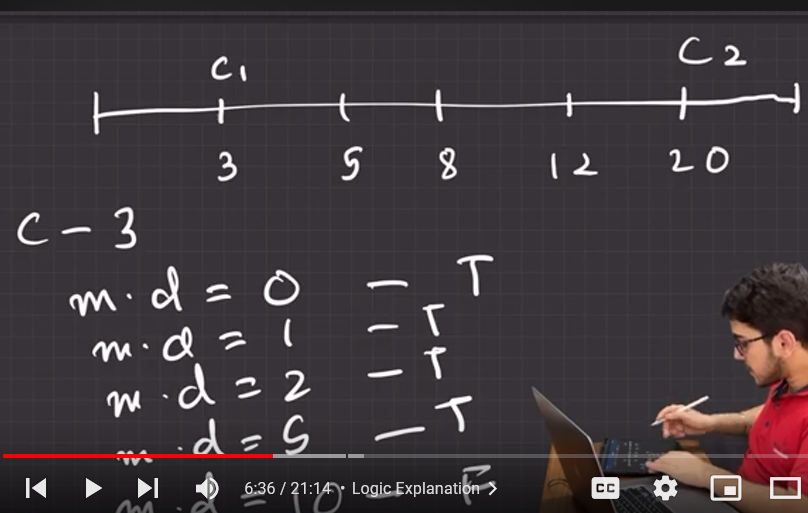 C1 C2
3 5 8 12 20
C - 3
m.d = 0 - T
m.d = 1 - T
m.d = 2 - T
m.d = 5 - T
m.d = 10 - F
6:36 / 21:14 • Logic Explanation >
CC